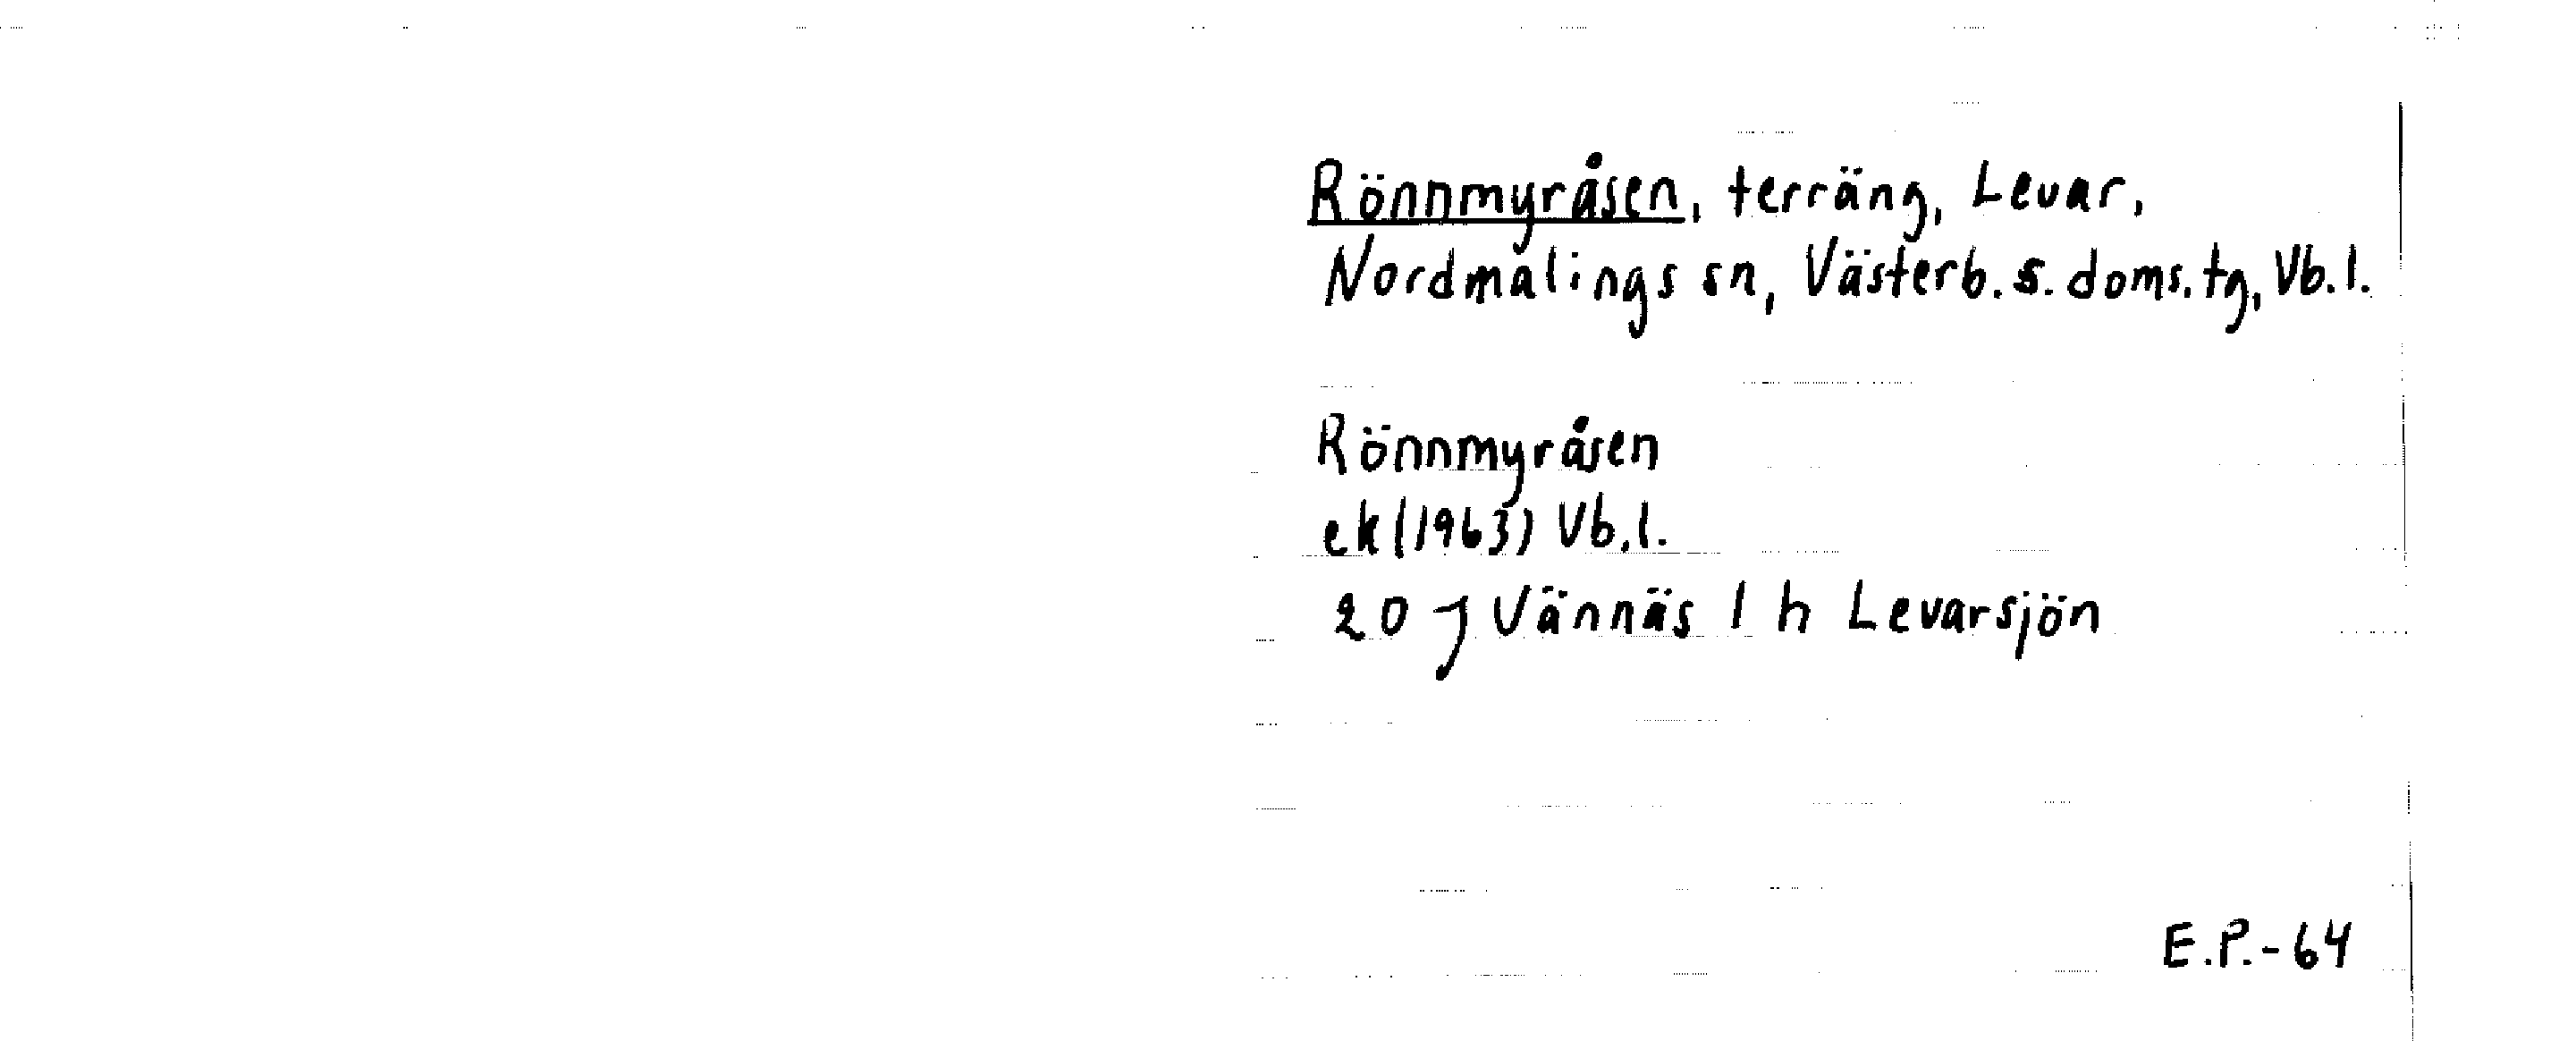 Rönnmyråsen, terräng, Levar,
Nordmalings sn, Västerb. s. doms. tg, Vb. l.
Rönnmyråsen
ek (1963) Vb. l.
20 J Vännäs 1 h Levarsjön
E.P.-64